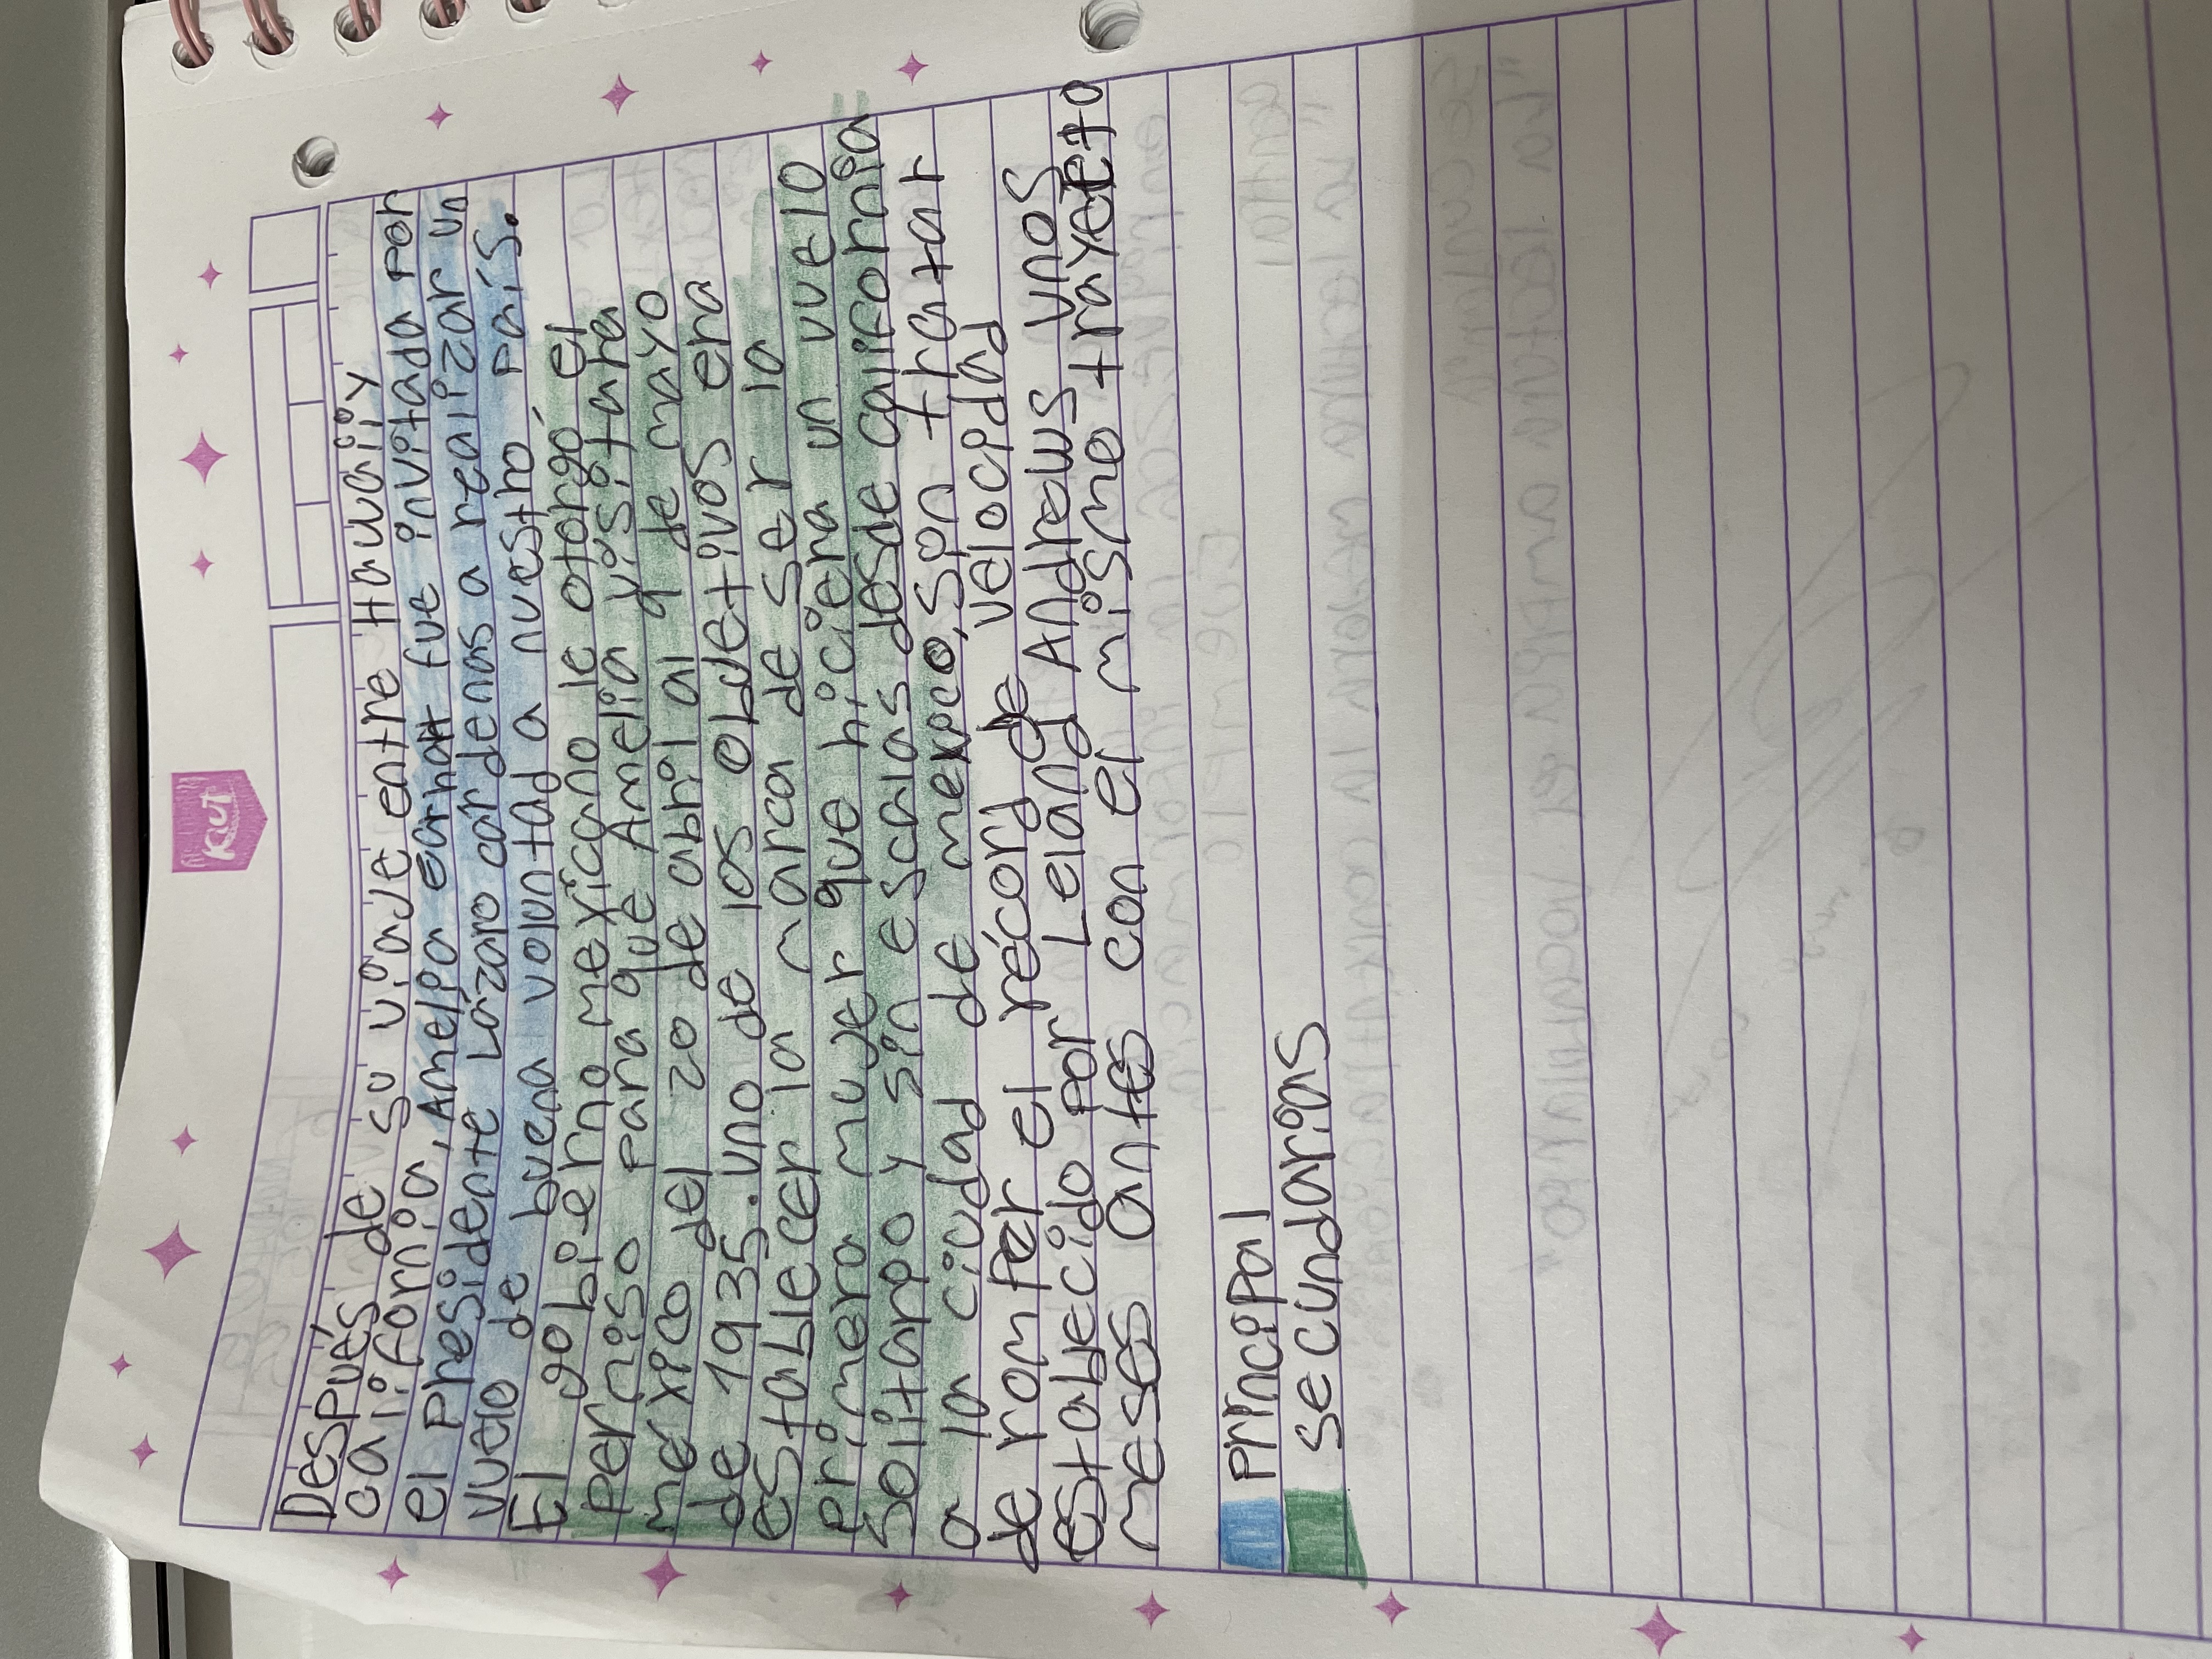 Después de su viaje entre Hawaii y
california, Amelia Earhart fue invitada por
el presidente Lázaro cárdenas a realizar un
vuelo de buena voluntad a nuestro país.
El gobierno mexicano le otorgó el
permiso para que Amelia visitara
méxico del 20 de abril al 9 de mayo
de 1935. uno de los objetivos era
establecer la marca de ser la
primera mujer que hiciera un vuelo
solitario y sin escalas desde california
a la ciudad de mexico, son tratar
de romper el récord de velocidad
establecido por Leland Andrews unos
meses antes con el mismo trayecto
principal
secundarias
Kut